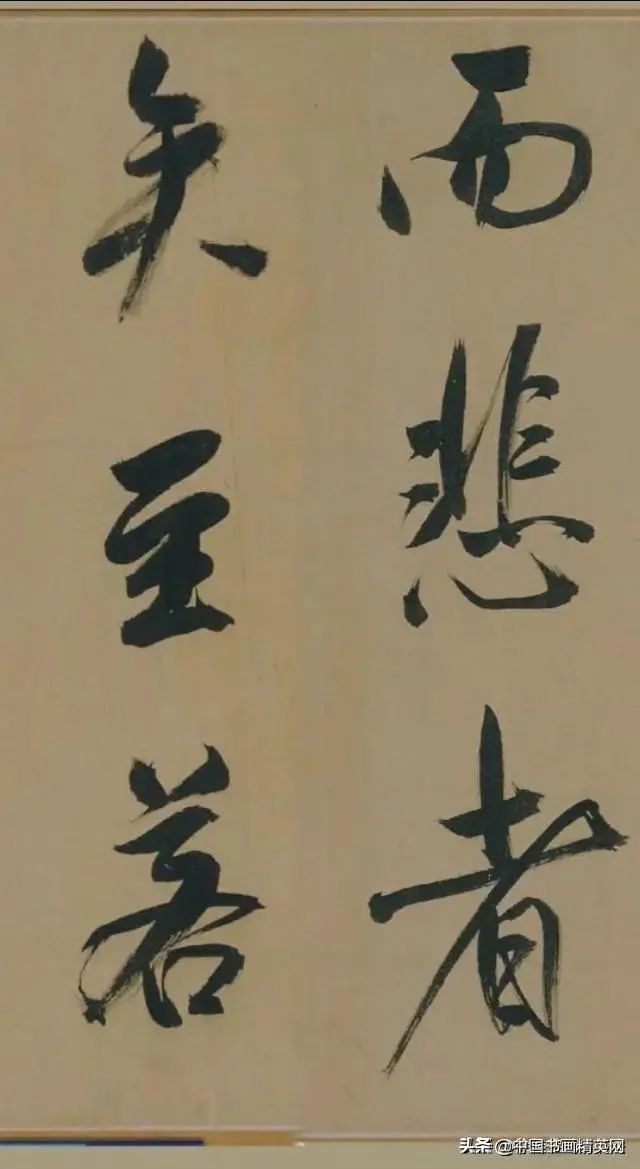 而悲者
矣至若
头条 @中国书画精英网